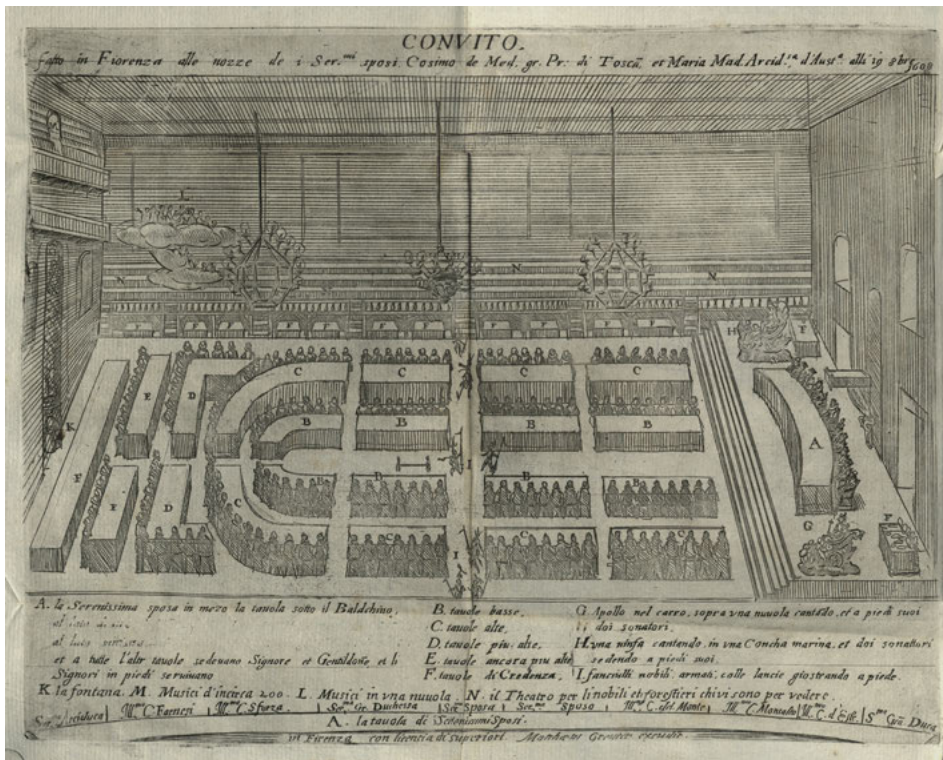 CONVITO.
fatto in Fiorenza alle nozze de i Ser.mi sposi Cosimo de Med. gr. Pr. di Toscã. et Maria Mad. Arcid.sa d'Aust.a alli 19 8bre 1608
L
N N N
F F F F F F F F F F
H F
K E D C C C C
B B B B
A
F F D C B B B B
I
C C C
G F
I
A. la Serenissima sposa in mezo la tauola sotto il Baldchino,
al lato
al lato
et a tutte l'altr tauole sedeuano Signore et Gentildoñe, et li
Signori in piedi seruiuano
B. tauole basse.
C. tauole alte.
D. tauole piu alte.
E. tauole ancora piu alte
F. tauole di Credenza.
G. Apollo nel carro, sopra vna nuuola cantãdo, et a piedi suoi
doi sonatori.
H. vna ninfa cantando, in vna Concha marina, et doi sonattori
sedendo a piedi suoi.
I. fanciulli nobili, armati, colle lancie giostrando a piede.
K la fontana. M. Musici d'incirca 200. L. Musici in vna nuuola. N. il Theatro per li nobili et foresteri chivi sono per vedere.
Ser.mo Arciduca Ill.mo C. Farnesi Ill.mo C. Sforza. Ser.ma Gr. Duchessa Ser.ma Sposa Ser.mo Sposo Ill.mo C. del Monte Ill.mo C. Montalto Ill.mo C. d'Este. S.mo Grã Duca
A. la tauola di Serenissimi Sposi.
in Firenza con licentia di superiori. Matthæus Greuter